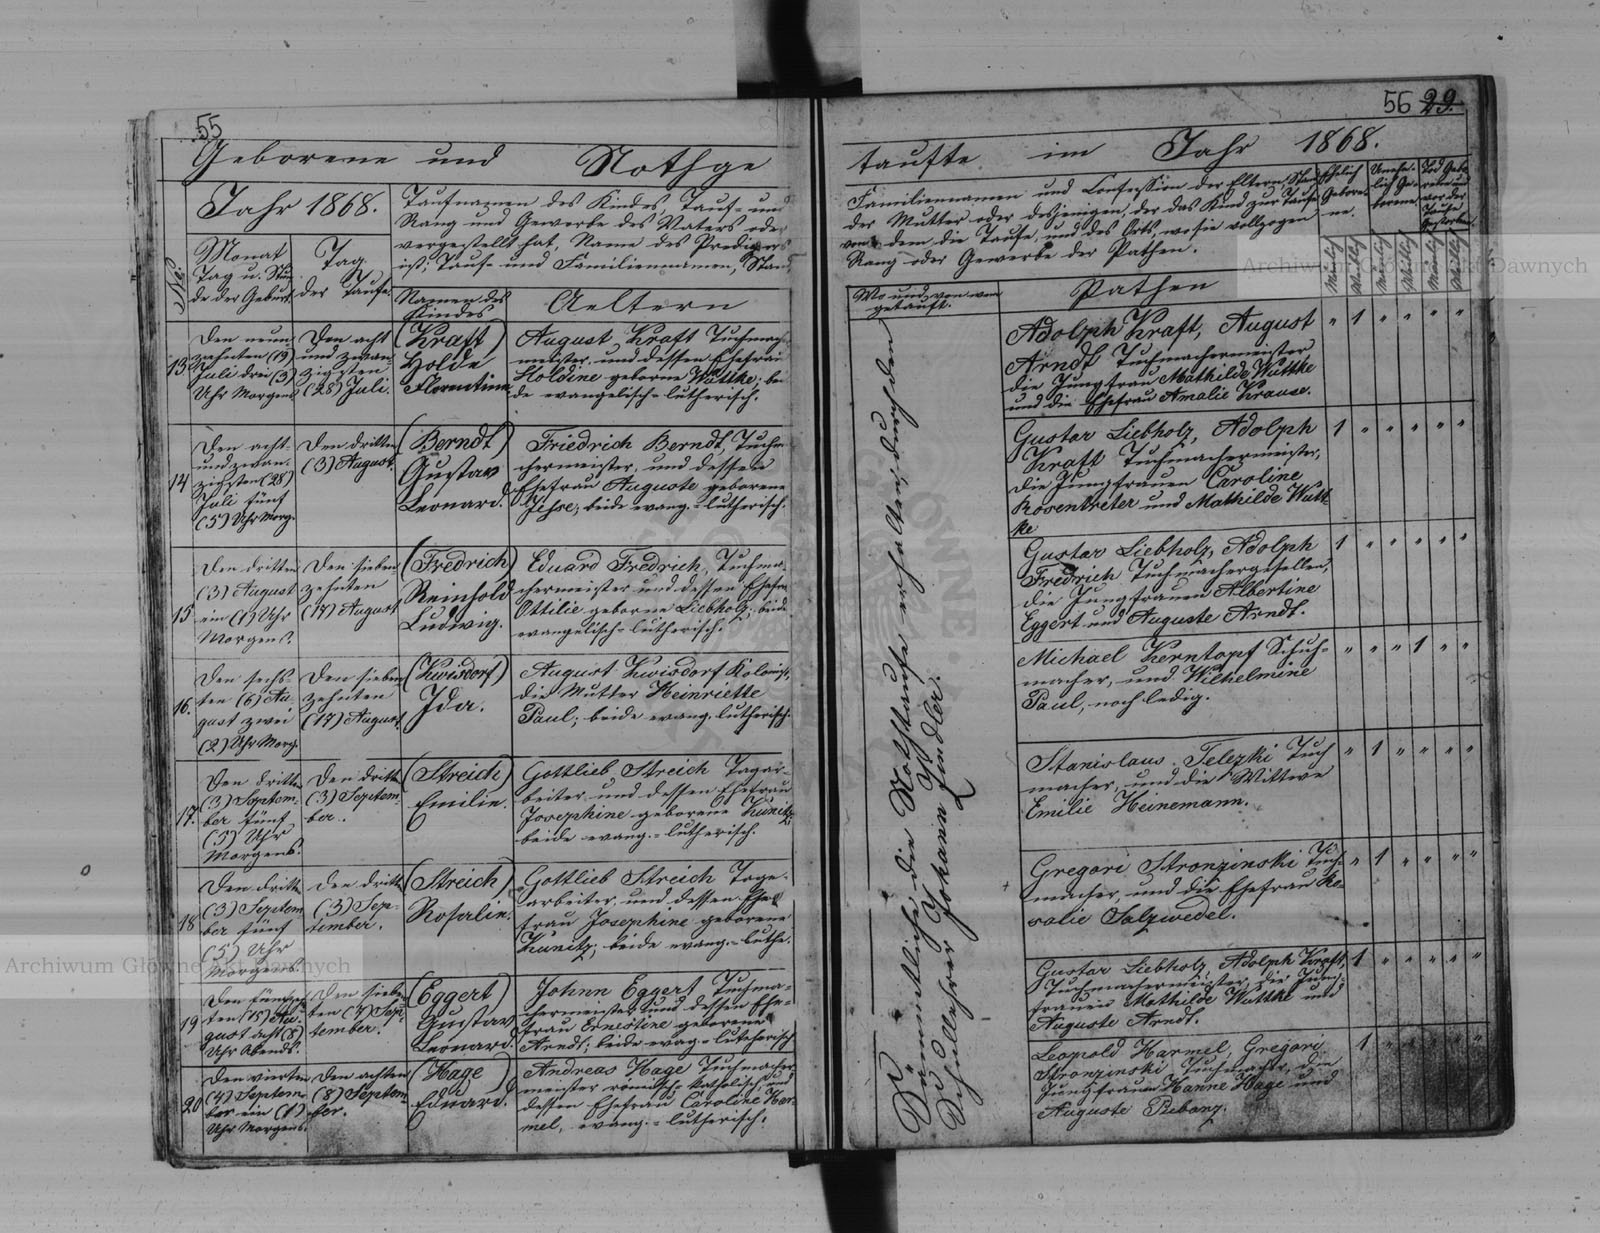 55
Geborene und Nothge
Jahr 1868.
Taufnamen des Kindes, Tauf- und
Rang und Gewerbe des Vaters oder
vorgestellt hat, Name des Predigers
ist; Tauf- und Familiennamen, Stand
No.
Monat
Tag u. Stun
de der Geburt.
Tag
der Taufe.
Namen des
Kindes
Aeltern
13
Den neun
zehnten (19)
Juli drei (3)
Uhr Morgens
Den acht
und zwan
zigsten
(28) Juli.
(Kraft)
Holde
Florentine
August Kraft Tuchmach
meister und dessen Ehefrau
Holdine geborne Wuttke; bei
de evangelisch-lutherisch.
14
Den acht-
und zwan-
zigsten (28)
Juli fünf
(5) Uhr Morg.
Den dritten
(3) August.
(Berndt)
Gustav
Leonard.
Friedrich Berndt, Tuchma
chermeister, und dessen
Ehefrau Auguste geborene
beide evang.-lutherisch.
15
Den dritten
(3) August
ein (1) Uhr
Morgens.
Den sieben
zehnten
(17) August
(Fredrich)
Reinhold
Ludwig.
Eduard Fredrich, Tuchma-
chermeister und dessen Ehefrau
Ottilie geborne Liebholz; beide
evangelisch-lutherisch.
16.
Den sechs
ten (6) Au
gust zwei
(2) Uhr Morg.
Den sieben
zehnten
(17) August.
(Kwisdorf)
Ida.
August Kwisdorf Kolonist,
die Mutter Heinriette
Paul; beide evang. lutherisch.
17.
Den dritten
(3) Septem-
ber fünf
(5) Uhr
Morgens.
Den dritten
(3) Septem-
ber.
(Streich)
Emilie.
Gottlieb Streich Tagar-
beiter und dessen Ehefrau
Josephine geborene Kunitz,
beide evang.-lutherisch.
18
Den dritten
(3) Septem
ber fünf
(5) Uhr
Morgens.
Den dritten
(3) Sep-
tember.
(Streich)
Rosalie.
Gottlieb Streich Tage-
arbeiter, und dessen Ehe
frau Josephine geborene
Kunitz; beide evang.-luthe.
19
Den fünfzehn
ten (15) Au-
gust acht (8)
Uhr Abends.
Den sieben
ten (7) Sep-
tember.
(Eggert)
Gustav
Leonard.
Johnn Eggert Tuchma-
chermeister und dessen Ehe-
frau Ernestine geborene
Arndt; beide evag.-lutherisch
20
Den vierten
(4) Septem-
ber ein (1)
Uhr Morgens.
Den achten
(8) Septem-
ber.
(Hage)
Eduard.
Andreas Hage Tuchmacher
meister römisch-katholisch, und
dessen Ehefrau Caroline Har-
mel, evang.-lutherisch.
56 29.
taufte im Jahr 1868.
Familiennamen und Confession der Eltern, Stand
der Mutter oder desjenigen, der das Kind zur Taufe
von dem die Taufe, und des Orts, wo sie vollzogen
Rang oder Gewerbe der Pathen.
Ehelich
Gebore-
ne.
Unehe-
lich Ge-
borene
Tod Gebo
rene und
vor der
Taufe
Gestorbene.
Männlich
Weiblich
Männlich
Weiblich
Männlich
Weiblich
Wo und von wem
getauft.
Pathen
Sämmtliche die Nothtaufe erhalten durch den
Schullehrer Johann Lindler.
Adolph Kraft, August
Arndt Tuchmachermeister
die Jungfrau Mathilde Wuttke
und die Ehefrau Amalie Krause.
" 1 " " " "
Gustav Liebholz, Adolph
Kraft Tuchmachermeister,
die Jungfrauen Caroline
Rosentreter und Mathilde Wutt
ke
1 " " " " "
Gustav Liebholz, Adolph
Fredrich Tuchmachergesellen,
die Jungfrauen Albertine
Eggert und Auguste Arndt.
1 " " " " "
Michael Kerntopf Schuh-
macher, und Wilhelmine
Paul, noch ledig.
" " " 1 " "
Stanislaus Telezki Tuch
macher, und die Wittwe
Emilie Heinemann.
" 1 " " " "
Gregori Stronzinski Tuch-
macher, und die Ehefrau Ro-
salie Salzwedel.
" 1 " " " "
Gustav Liebholz, Adolph Kraft,
Tuchmachermeister, die Jung-
frauen Mathilde Wuttke und
Auguste Arndt.
1 " " " " "
Leopold Harmel, Gregori
Stronzinski Tuchmacher, die
Jungfrauen Hanne Hage und
Auguste Rebanz.
1 " " " " "
Archiwum Główne Akt Dawnych
Archiwum Główne Akt Dawnych